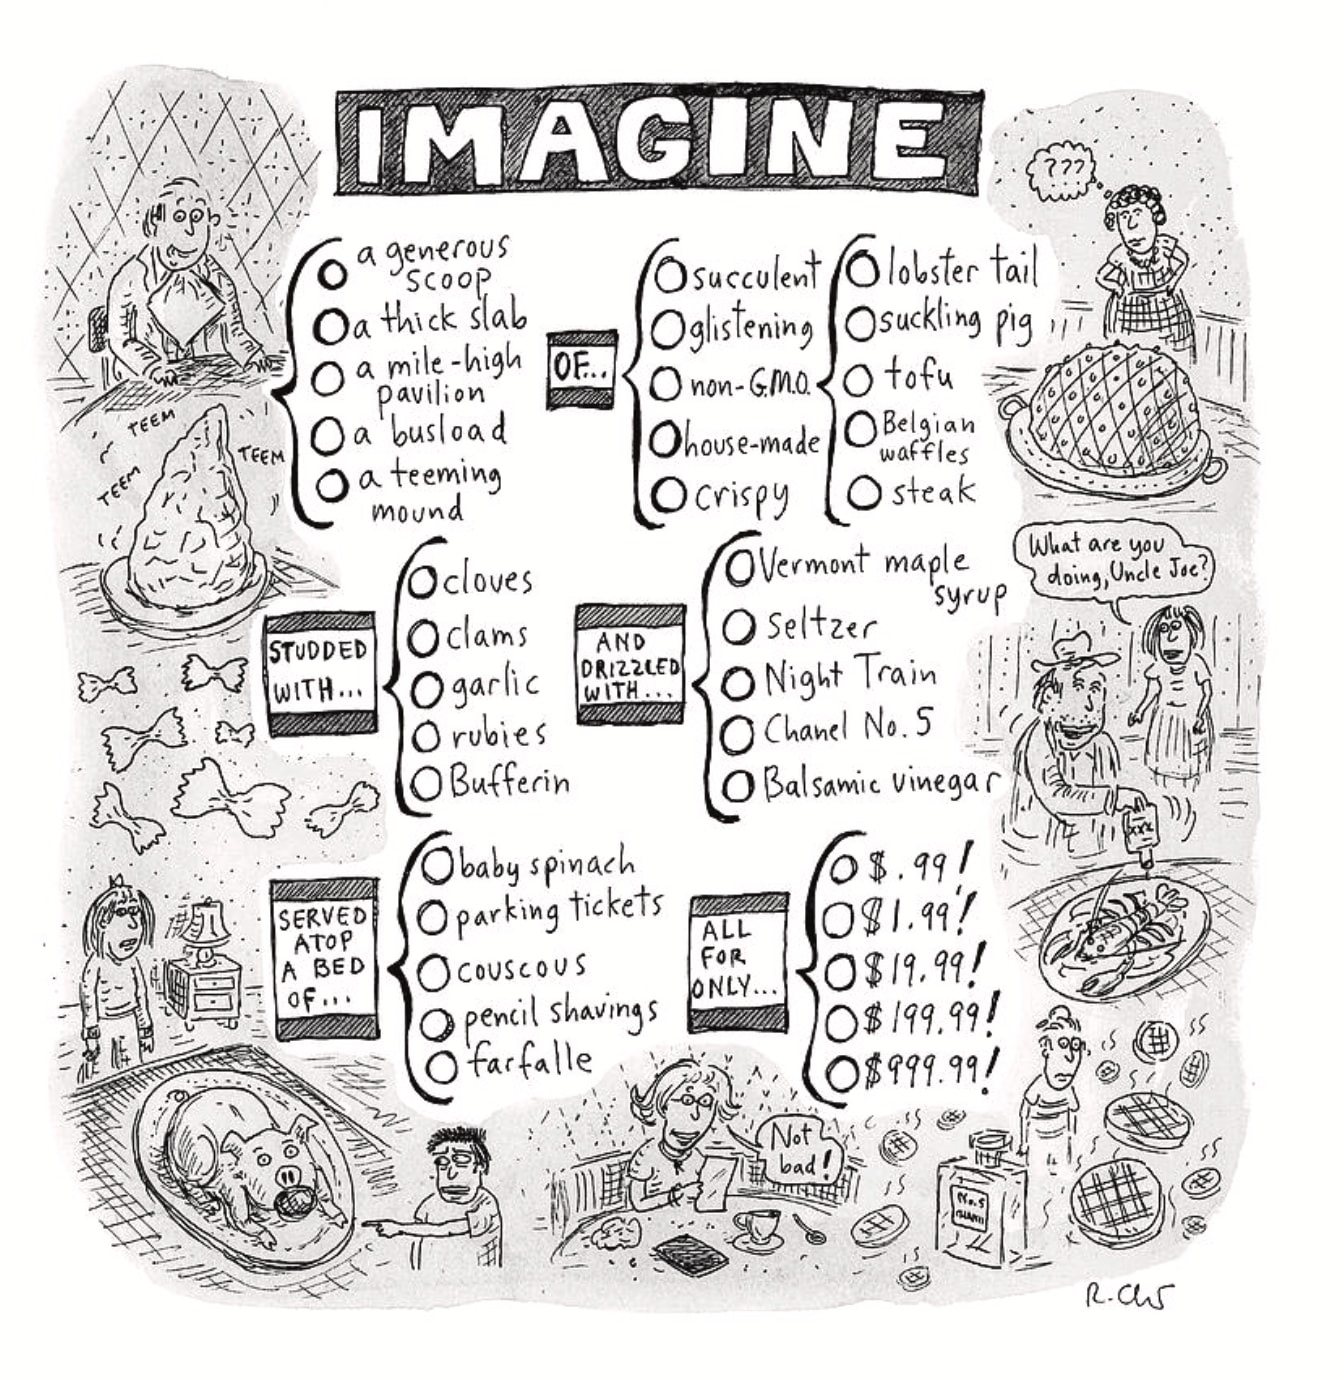 IMAGINE
a generous
scoop
a thick slab
a mile-high
pavilion
a busload
a teeming
mound
OF...
succulent
glistening
non-G.M.O.
house-made
crispy
lobster tail
suckling pig
tofu
Belgian
waffles
steak
???
TEEM
TEEM
TEEM
STUDDED
WITH...
cloves
clams
garlic
rubies
Bufferin
AND
DRIZZLED
WITH...
Vermont maple
syrup
Seltzer
Night Train
Chanel No. 5
Balsamic vinegar
What are you
doing, Uncle Joe?
XXX
SERVED
ATOP
A BED
OF...
baby spinach
parking tickets
couscous
pencil shavings
farfalle
ALL
FOR
ONLY...
$.99!
$1.99!
$19.99!
$199.99!
$999.99!
Not
bad!
No. 5
R. Chast